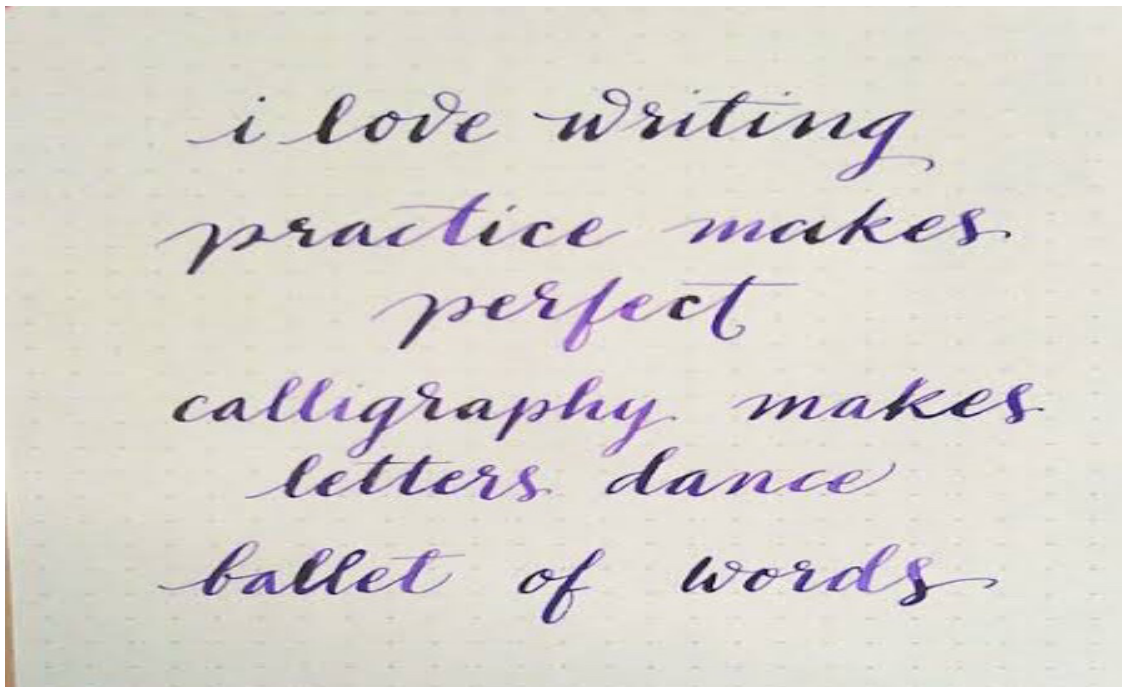 i love writing
practice makes
perfect
calligraphy makes
letters dance
ballet of words